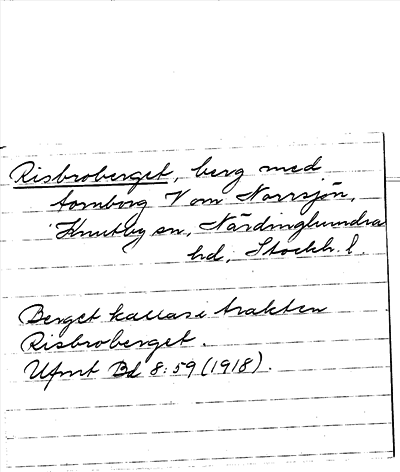 Risbroberget, berg med
tornborg V om Norrsjön,
Knutby sn, Närdinghundra
hd, Stockh. l.
Berget kallas i trakten
Risbroberget.
Ufmt Bd 8:59 (1918).